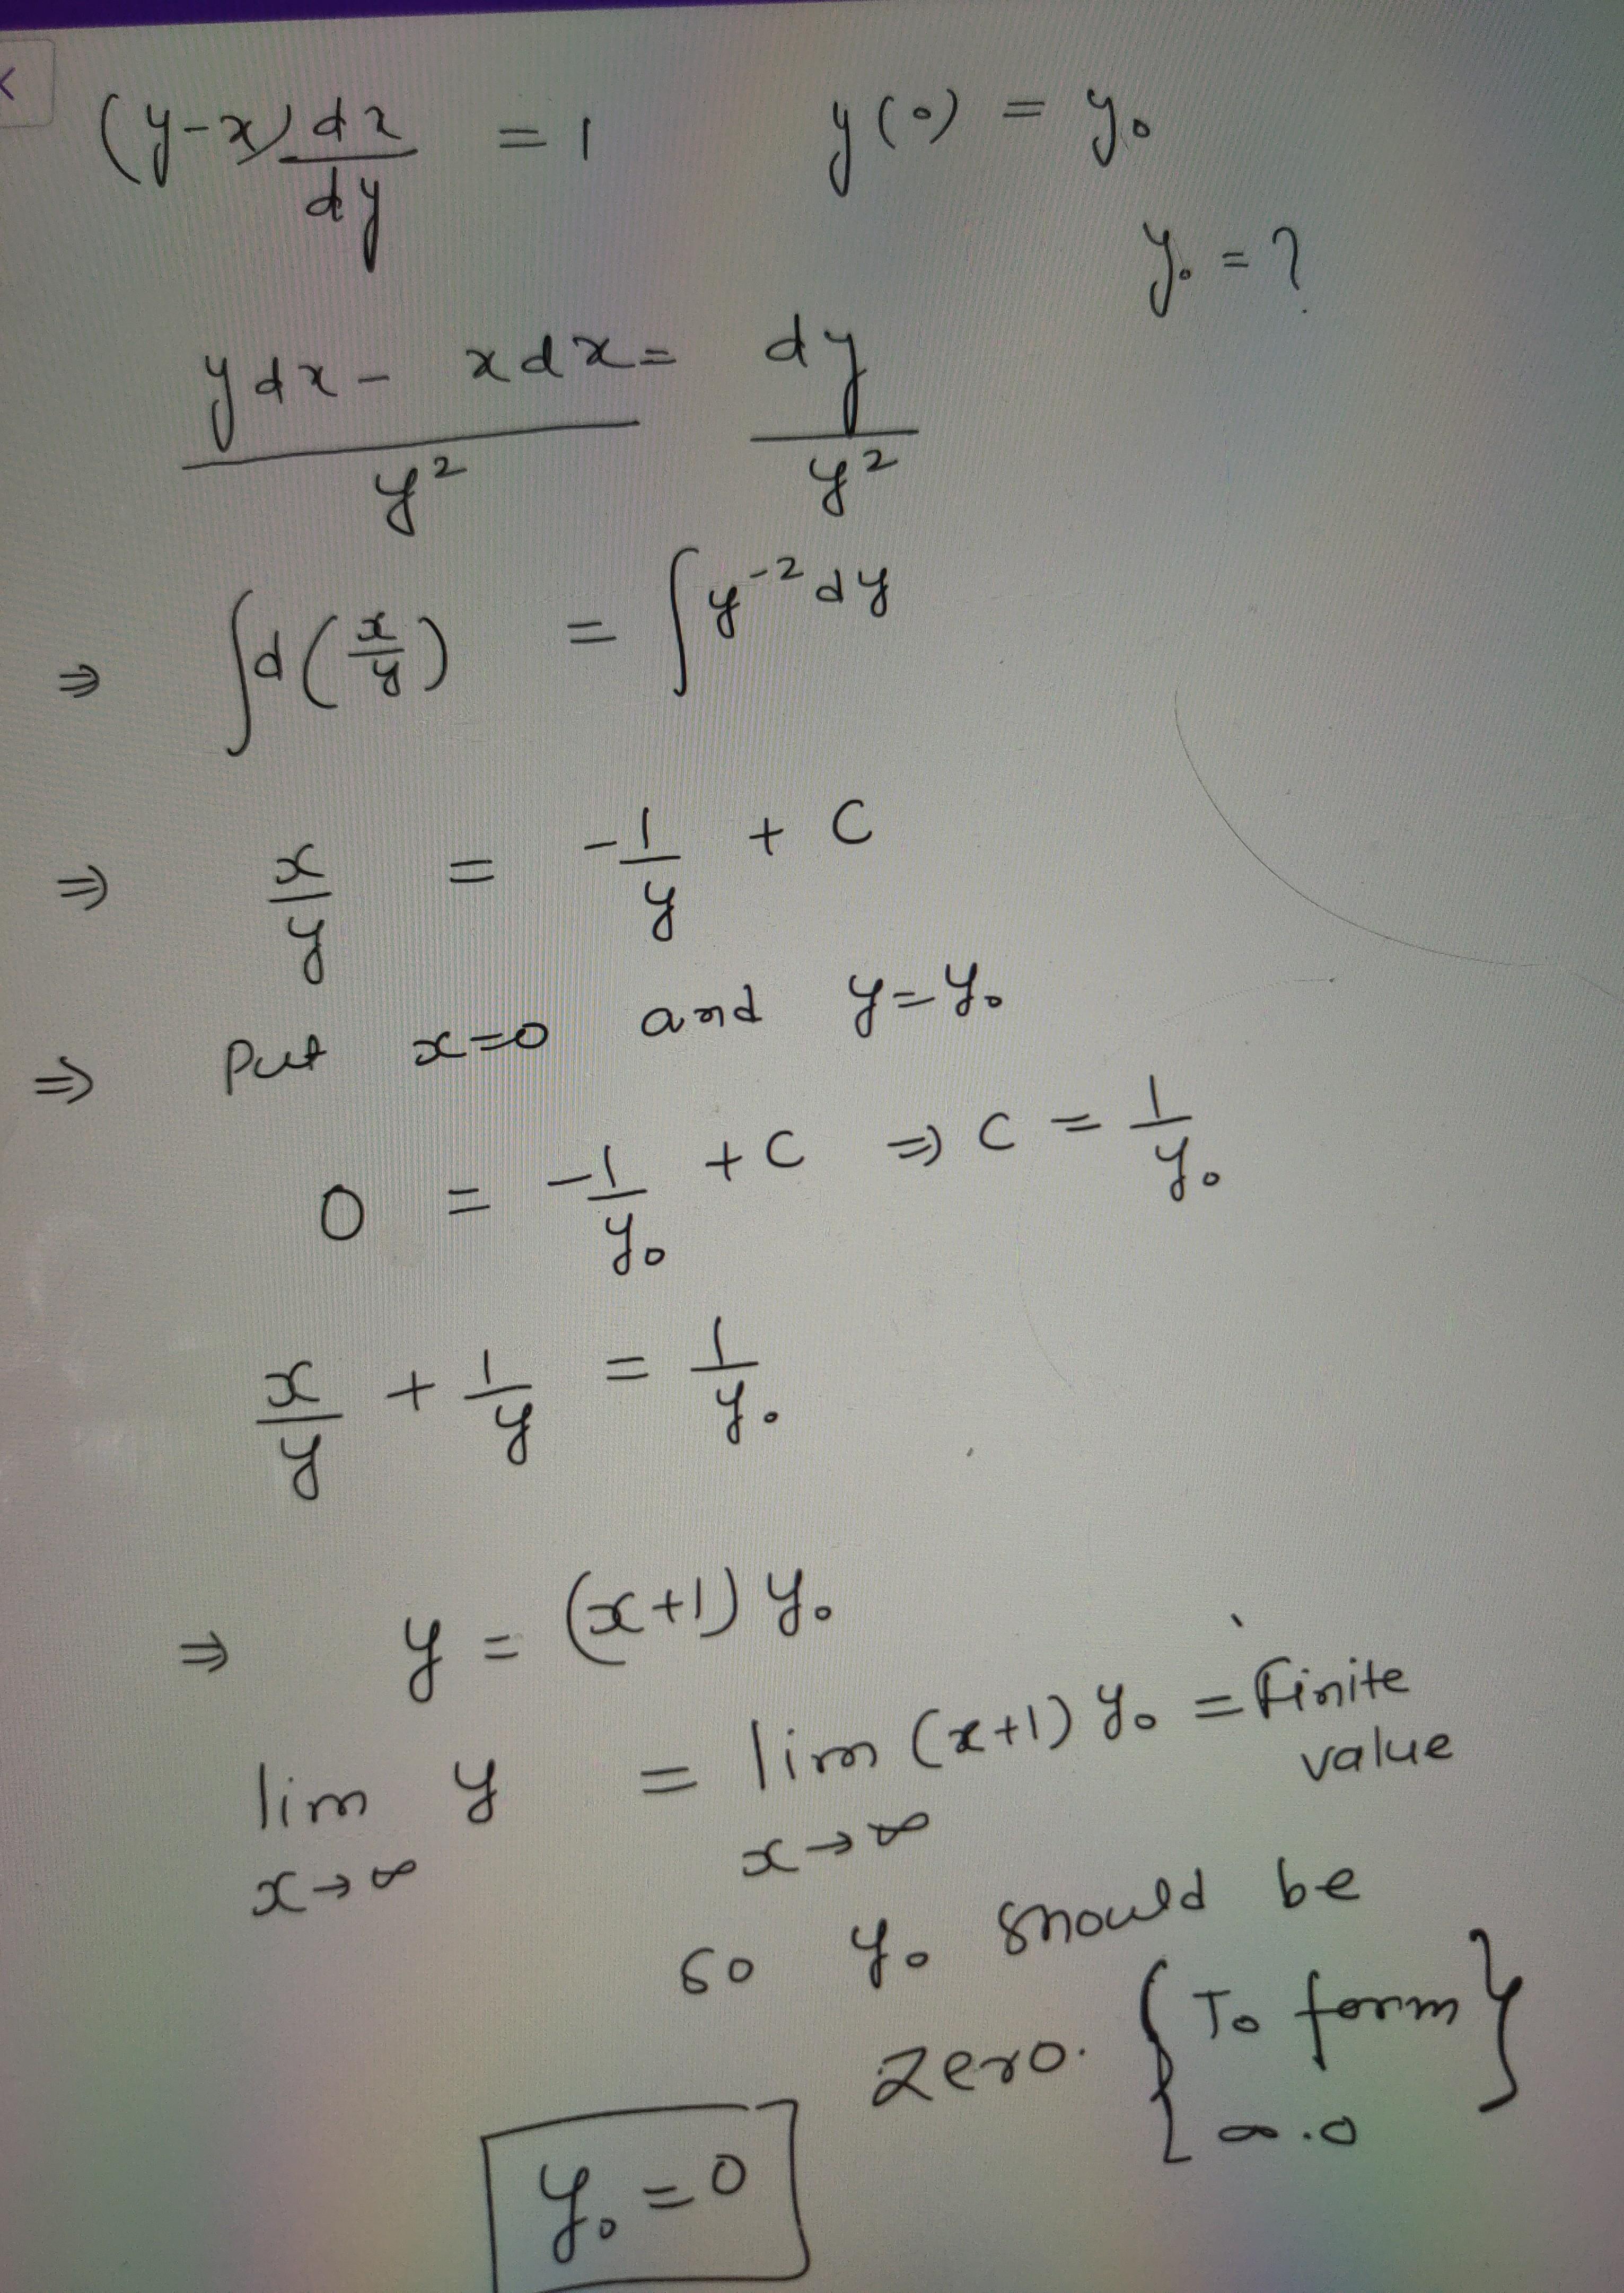 (y-x) dx/dy = 1 y(0) = y₀
y₀ = ?
(y dx - x dx)/y² = dy/y²
⇒ ∫d(x/y) = ∫y⁻² dy
⇒ x/y = -1/y + C
⇒ Put x=0 and y=y₀
0 = -1/y₀ + C ⇒ C = 1/y₀
x/y + 1/y = 1/y₀
⇒ y = (x+1) y₀
lim x→∞ y = lim x→∞ (x+1) y₀ = Finite
value
so y₀ should be
zero. {To form
∞.0}
y₀ = 0